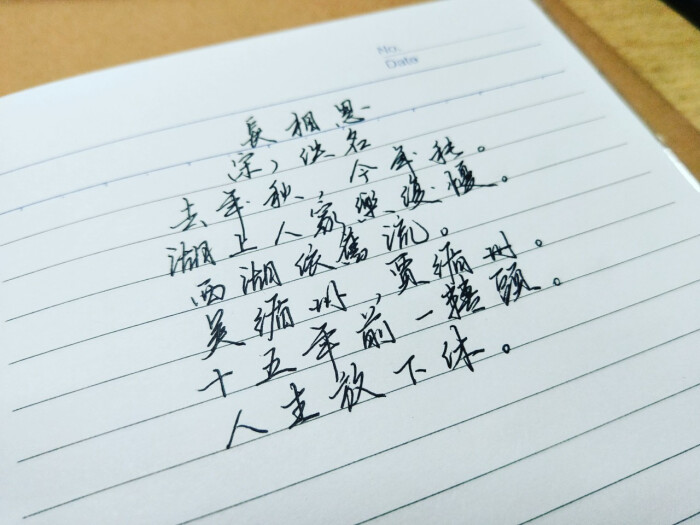 No.
Date
長相思
宋，佚名
去年秋，今年秋。
湖上人家樂復憂。
西湖依舊流。
吳循州，賈循州。
十五年前一轉頭。
人生放下休。